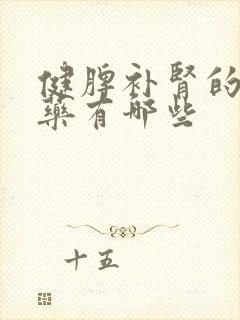 健脾补肾的
藥有哪些
十五